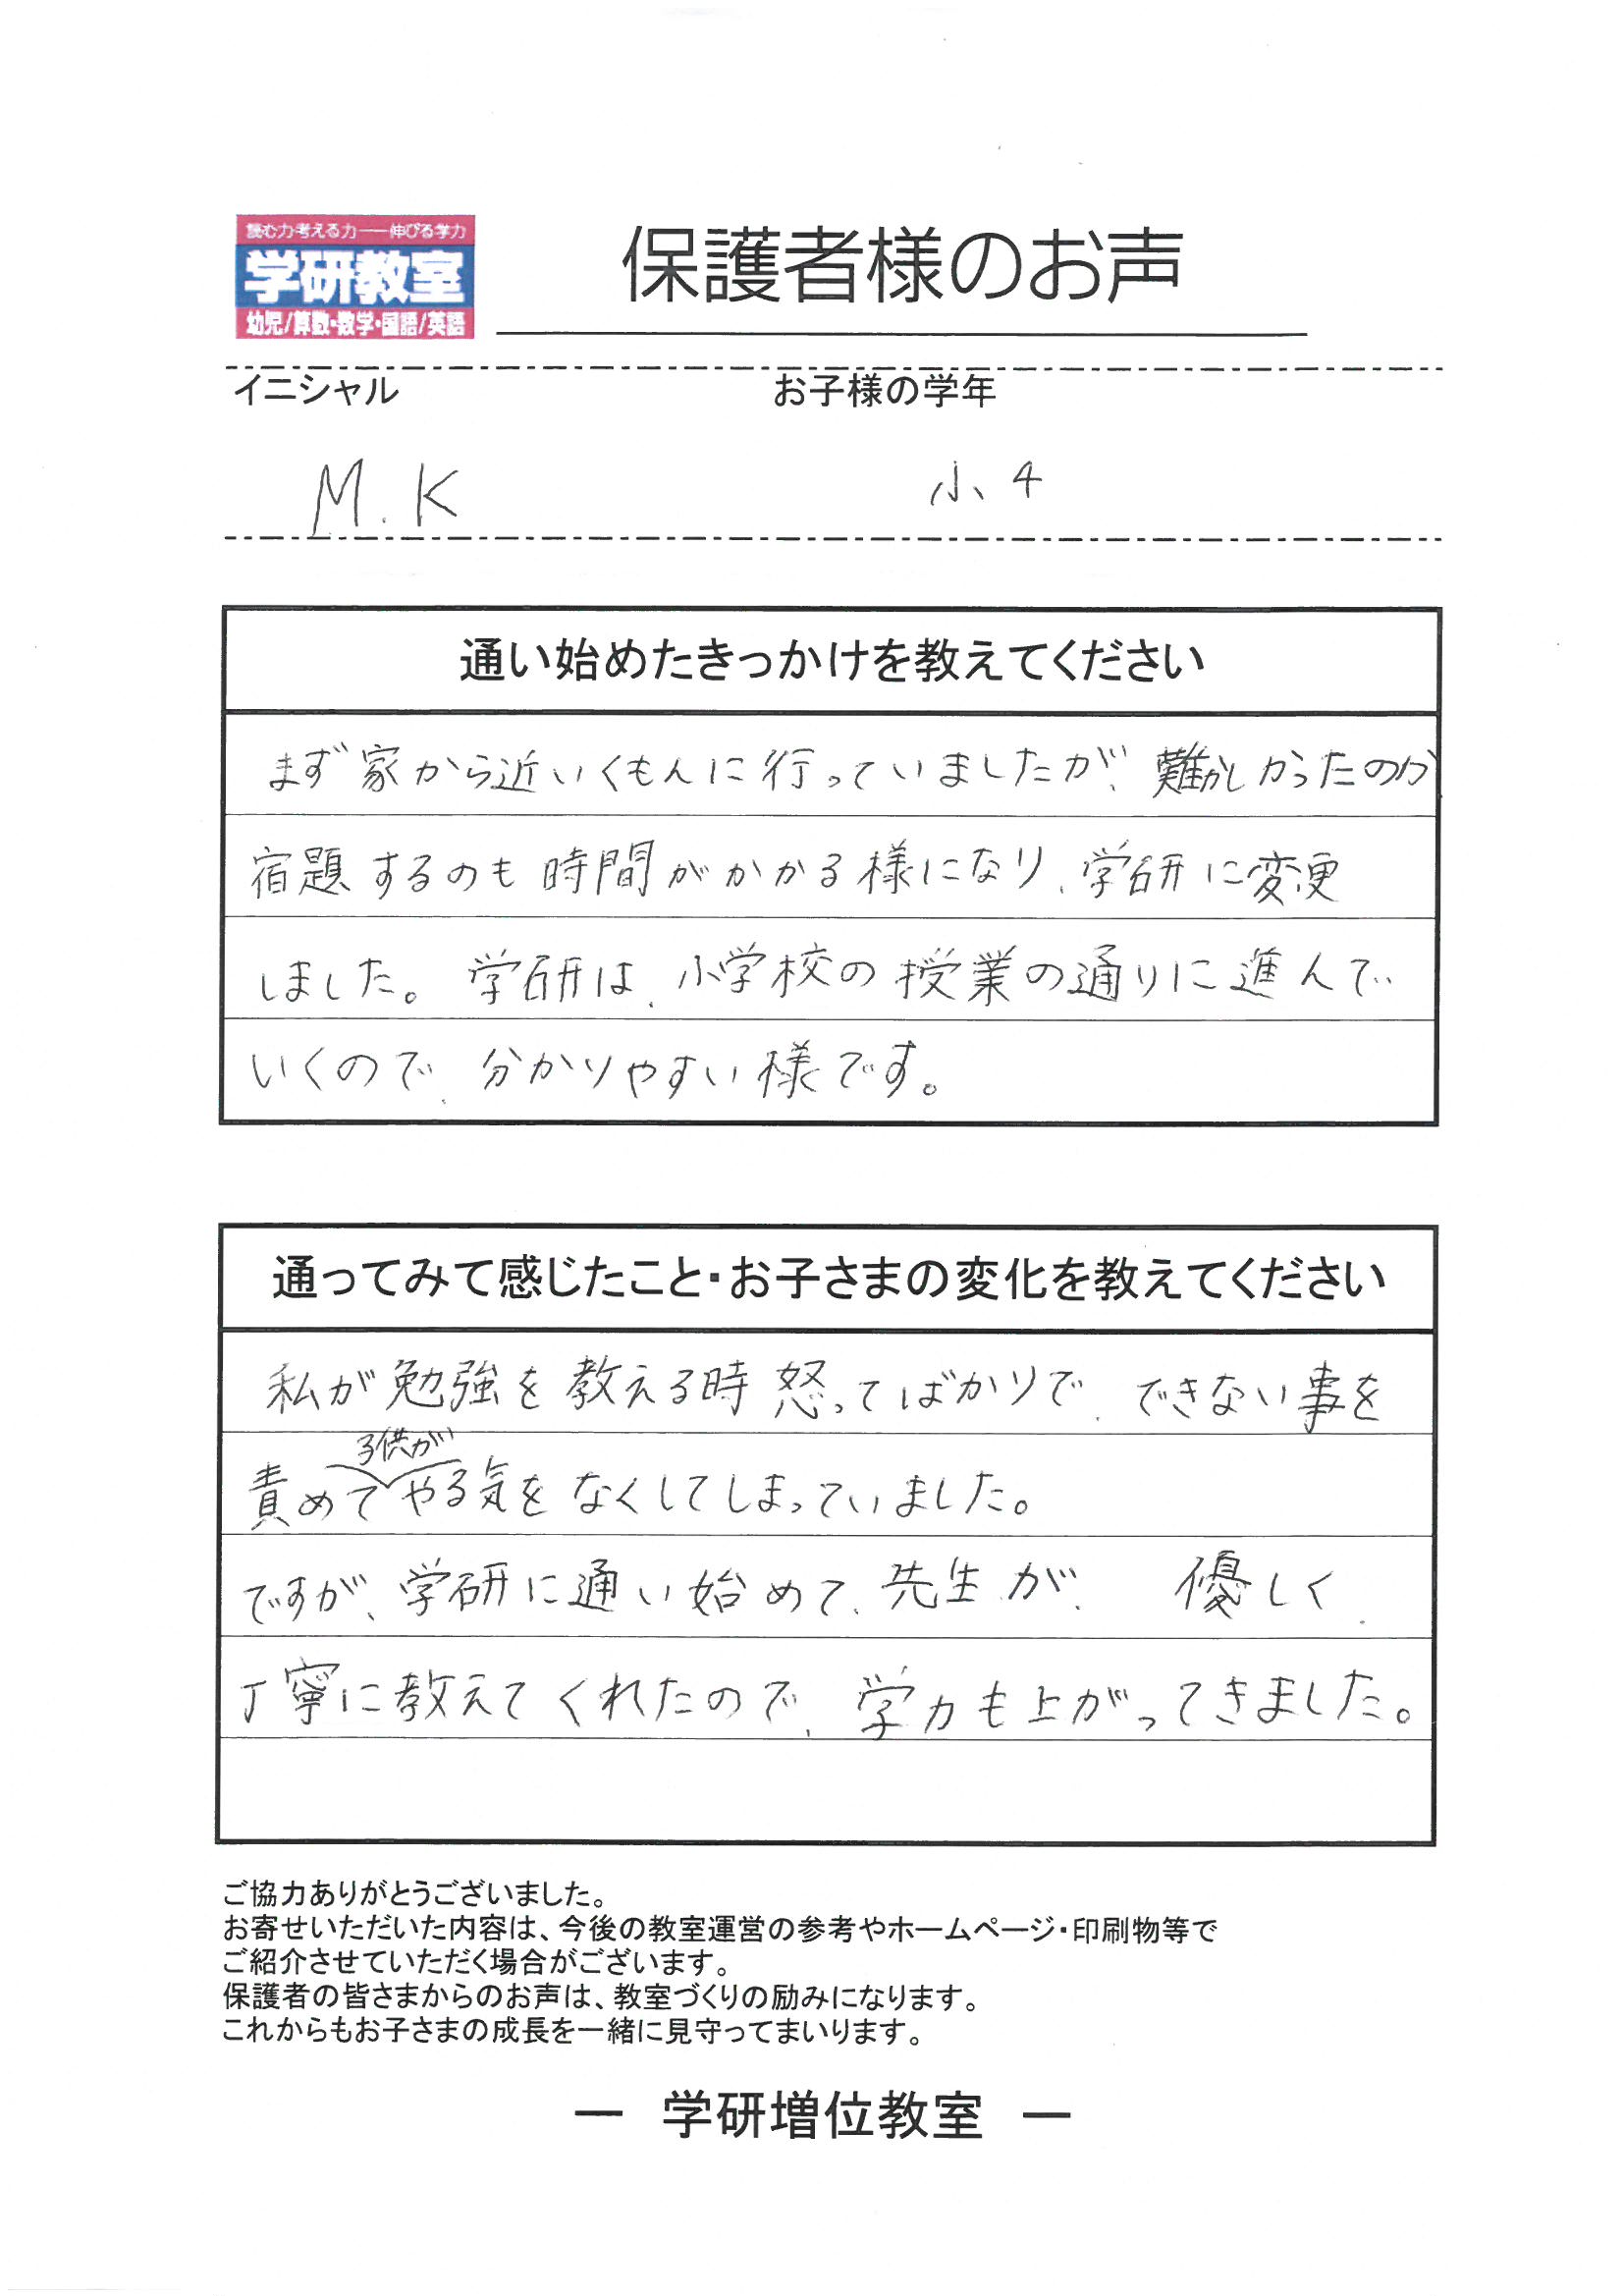 読む力考える力——伸びる学力
学研教室
幼児/算数・数学・国語/英語
保護者様のお声
イニシャル
お子様の学年
M.K
小4
通い始めたきっかけを教えてください
まず家から近いくもんに行っていましたが、難かしかったのか
宿題するのも時間がかかる様になり、学研に変更
しました。学研は、小学校の授業の通りに進んで
いくので、分かりやすい様です。
通ってみて感じたこと・お子さまの変化を教えてください
私が勉強を教える時怒ってばかりで、できない事を
子供が
責めてやる気をなくしてしまっていました。
ですが、学研に通い始めて、先生が、優しく、
丁寧に教えてくれたので、学力も上がってきました。
ご協力ありがとうございました。
お寄せいただいた内容は、今後の教室運営の参考やホームページ・印刷物等で
ご紹介させていただく場合がございます。
保護者の皆さまからのお声は、教室づくりの励みになります。
これからもお子さまの成長を一緒に見守ってまいります。
― 学研増位教室 ―